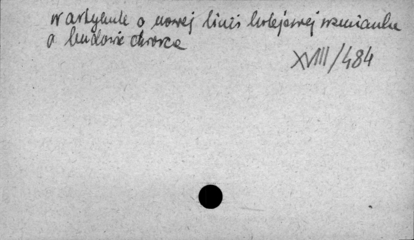 w artykule o nowej linii kolejowej wzmianka
o budowie dworca
XVIII/484